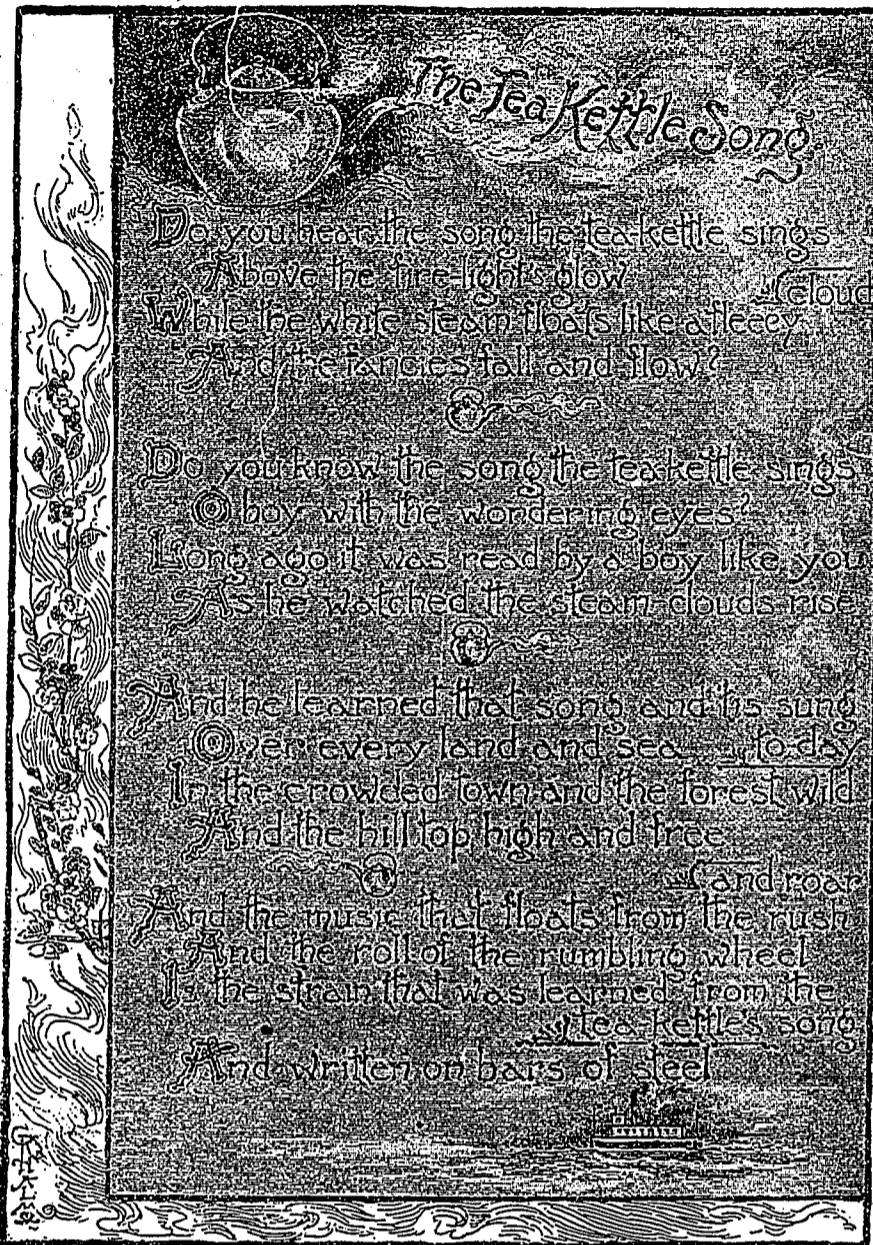 The Tea Kettle Song
Do you hear the song the tea-kettle sings
Above the fire-light's glow
While the white steam floats like a fleecy
cloud
And the fancies fall and flow?
Do you know the song the tea-kettle sings
O boy with the wondering eyes?
Long ago it was read by a boy like you
As he watched the steam-clouds rise
And he learned that song and 'tis sung
to-day
Over every land and sea
In the crowded town and the forest wild
And the hill top high and free
And the music that floats from the rush
and roar
And the roll of the rumbling wheel
Is the strain that was learned from the
tea-kettle's song
And written on bars of steel